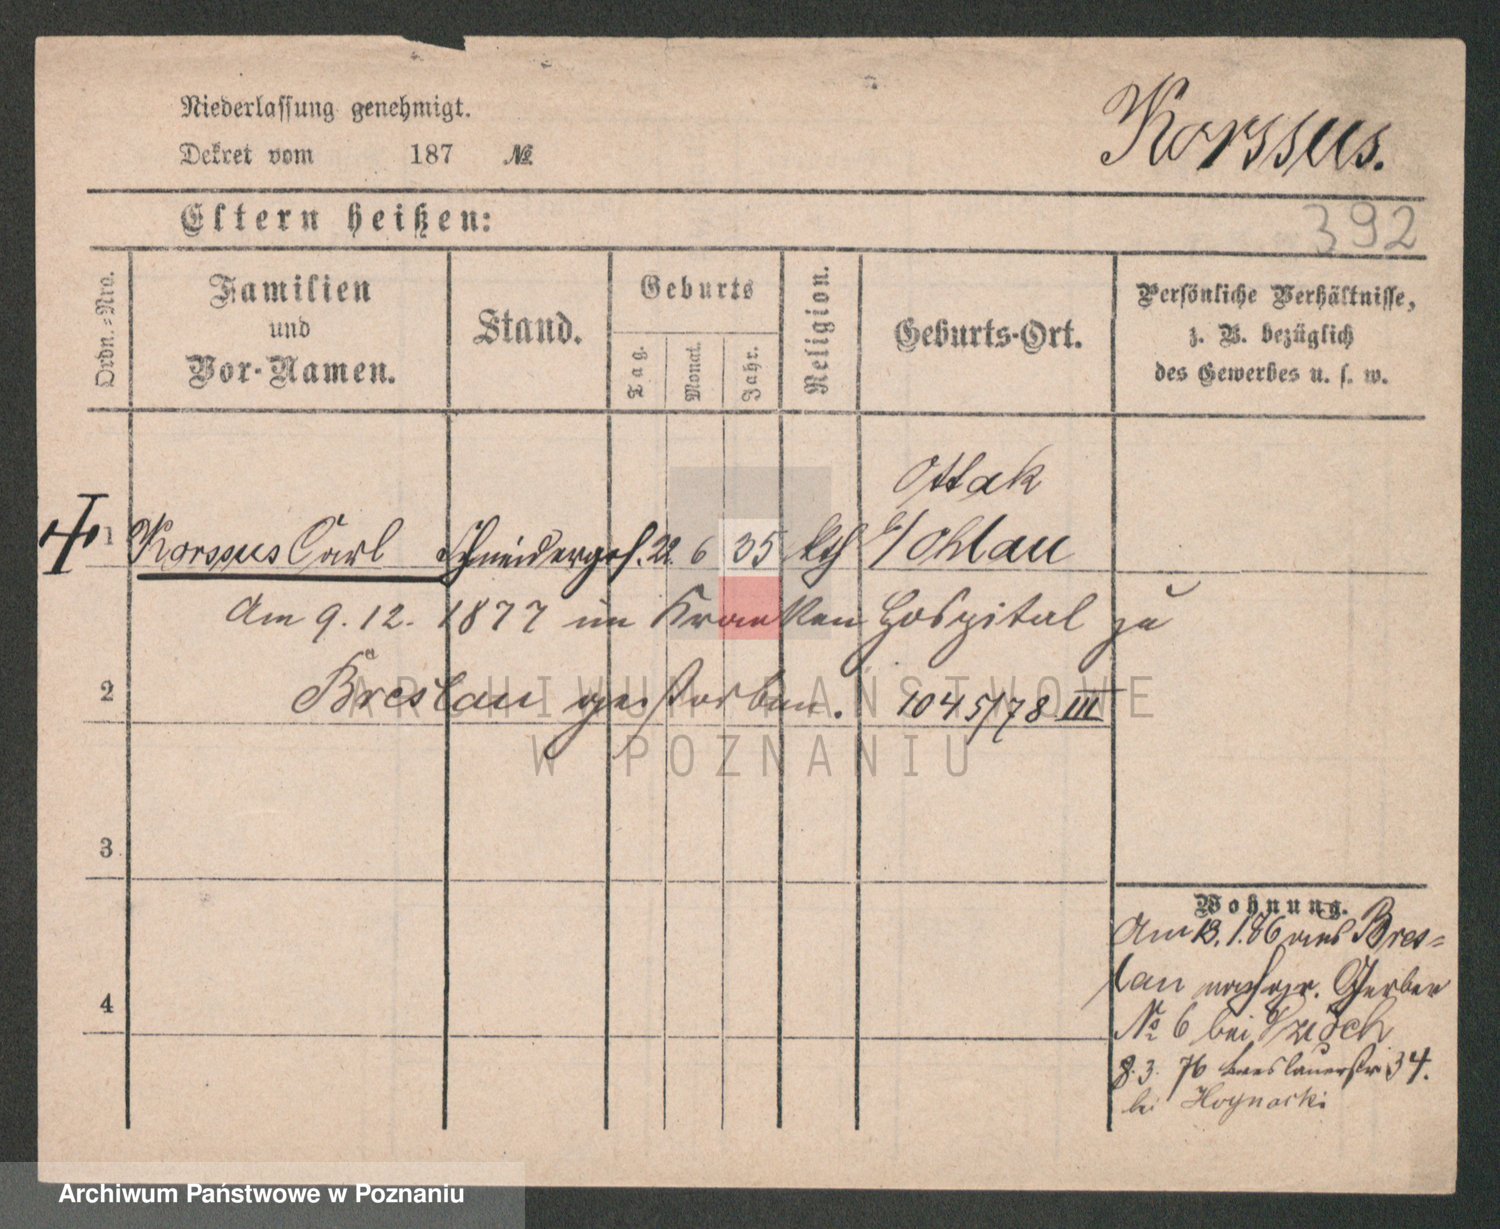 Niederlassung genehmigt.
Dekret vom 187 №
Korssus.
Eltern heißen:
392
Ordn.-Nro.
Familien
und
Vor-Namen.
Stand.
Geburts
Tag.
Monat.
Jahr.
Religion.
Geburts-Ort.
Persönliche Verhältnisse,
z. B. bezüglich
des Gewerbes u. s. w.
Ottak
1 Korssus Carl Schneiderges. 22. 6 35 kth Ohlau
Am 9. 12. 1877 im Kranken Hospital zu
2 Breslau gestorben. 1045/78 III
3
4
Wohnung.
Am 13. 1. 76 aus Bres=
lau nach gr. Gerber
№ 6 bei
8. 3. 76 Breslauerstr. 34.
bei Hoynacki
ARCHIWUM PAŃSTWOWE
W POZNANIU
Archiwum Państwowe w Poznaniu